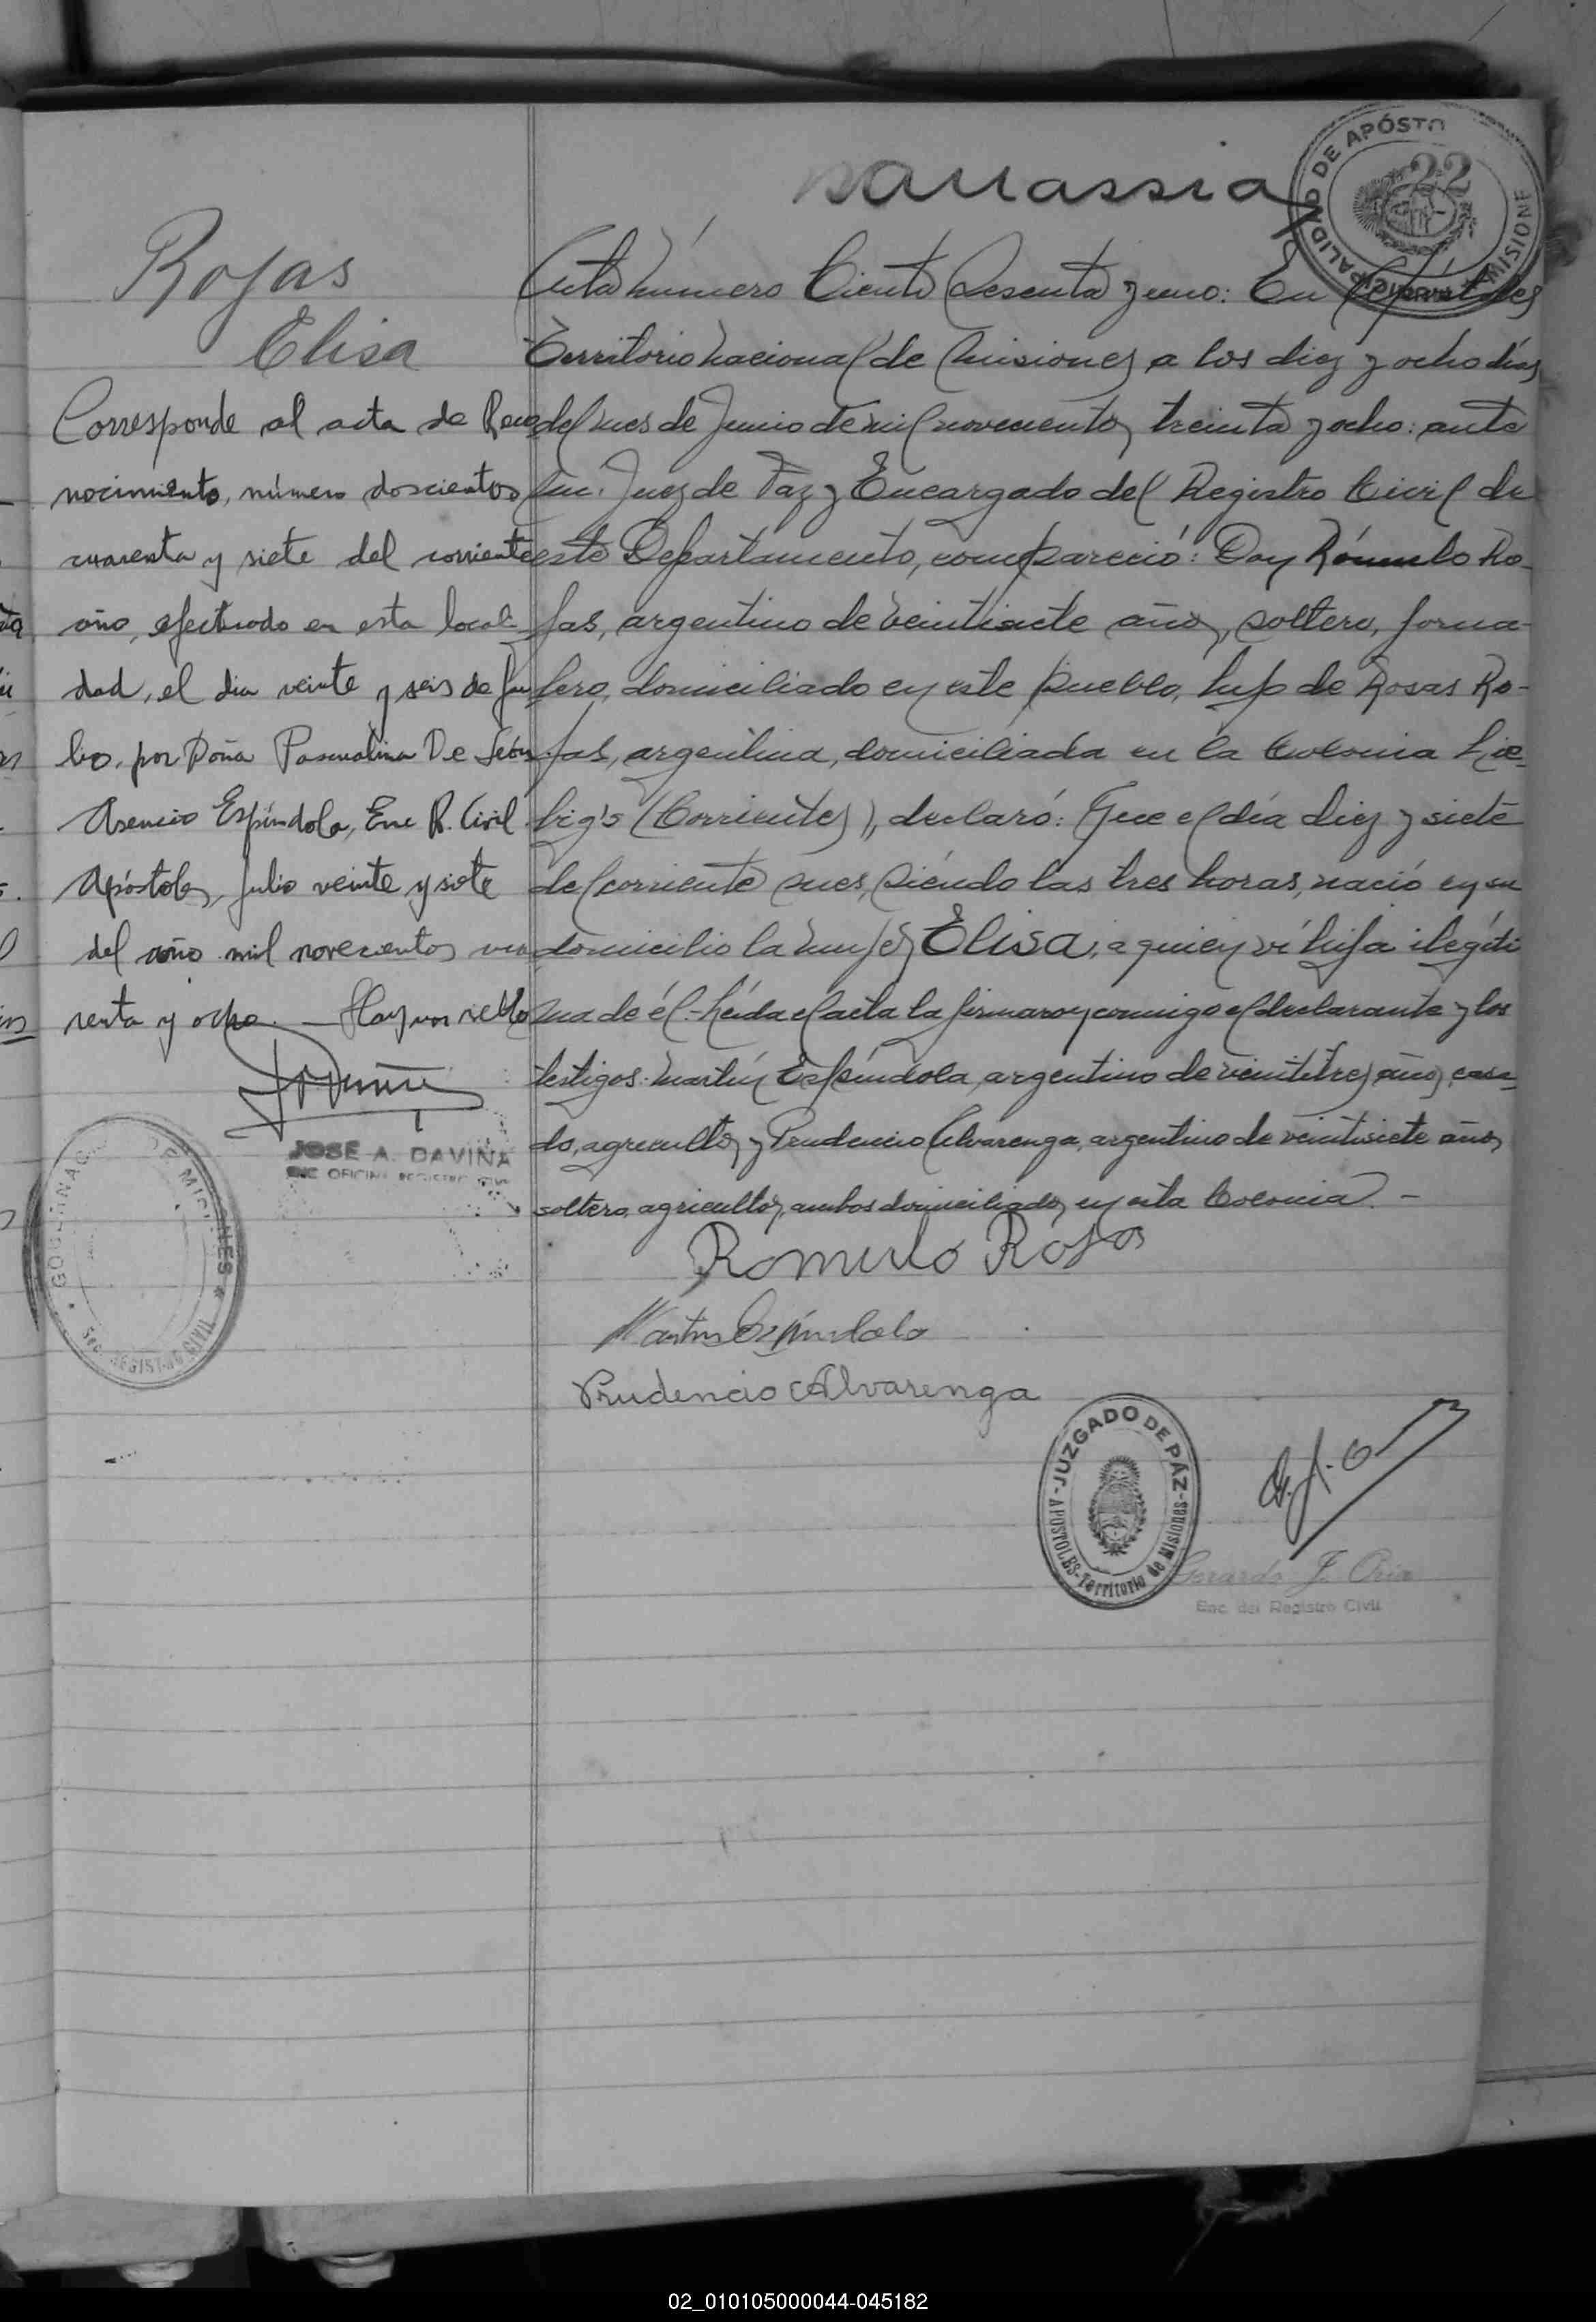 22
MUNICIPALIDAD DE APÓSTO
MISIONE
Rojas
Elisa
Corresponde al acta de Reco
nocimiento, número doscientos
cuarenta y siete del corriente
año, efectuado en esta locali
dad, el dia veinte y seis de Ju
lio, por Doña Pascualina De León.
Asencio Espíndola, Enc R. Civil
Apóstoles, Julio veinte y siete
del año mil novecientos cua
renta y ocho. — Hay un sello
JOSE A. DAVIÑA
ENC OFICINA REGISTRO CIVIL
GOBERNAC DE MISIONES
Sec. REGISTRO CIVIL
Acta número Ciento Sesenta y uno: En Apóstoles
Territorio Nacional de Misiones a los diez y ocho días
del mes de Junio de mil novecientos treinta y ocho: ante
mi. Juez de Paz y Encargado del Registro Civil de
este Departamento, compareció: Don Rómulo Ro-
jas, argentino de veintisiete años, soltero, jorna-
lero, domiciliado en este pueblo, hijo de Rosas Ro-
jas, argentina, domiciliada en la Colonia Lie-
big's (Corrientes), declaró: Que el día diez y siete
del corriente mes, siendo las tres horas, nació en su
domicilio la mujer Elisa, a quien ví hija ilegíti
ma de él.- Leída el acta la firmaron conmigo el declarante y los
testigos: Martín Espíndola, argentino de veintitres años, casa-
do, agricultor, y Prudencio Alvarenga, argentino de veintisiete años,
soltero, agricultor, ambos domiciliados en esta Colonia. -
Romulo Rojas
Martin Espindola
Prudencio Alvarenga
JUZGADO DE PÁZ
APOSTOLES - Territorio de Misiones
Gerardo J. Oria
Enc. del Registro Civil
02_010105000044-045182